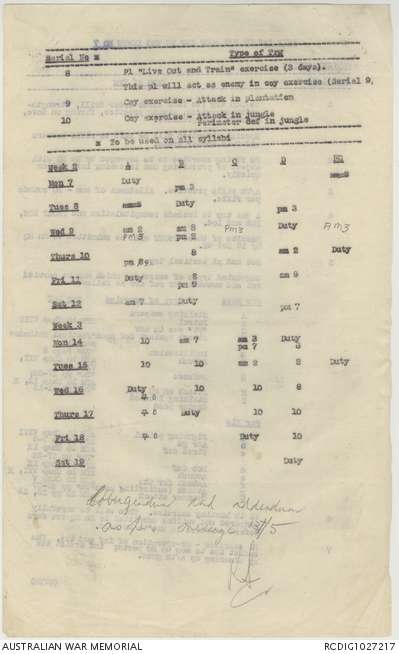 Serial No x Type of Trg
8 Pl "Live Out and Train" exercise (3 days).
This pl will act as enemy in coy exercise (Serial 9,
9 Coy exercise - Attack in plantation
10 Coy exercise - Attack in jungle
Perimeter Def in jungle
x To be used on all syllabi
Week 2 A B C D HQ
Mon 7 Duty pm 3
Tues 8 pm 3
Wed 9 am 2 am 8 PM3 Duty AM3
PM3 pm 2
Thurs 10 8 am 2 Duty
Fri 11 Duty 8 am 9
pm 9
Sat 12 am 7 Duty pm 7
Week 3
Mon 14 10 am 7 am 3 Duty
pm 7 8
Tues 15 10 10 am 2 8 Duty
Wed 16 Duty 10 10 8
Thurs 17 8 Duty 10 10
Fri 18 8 Duty 10
Sat 19 Duty
Corrigendum and Addendum
as per message 15/5
AUSTRALIAN WAR MEMORIAL RCDIG1027217